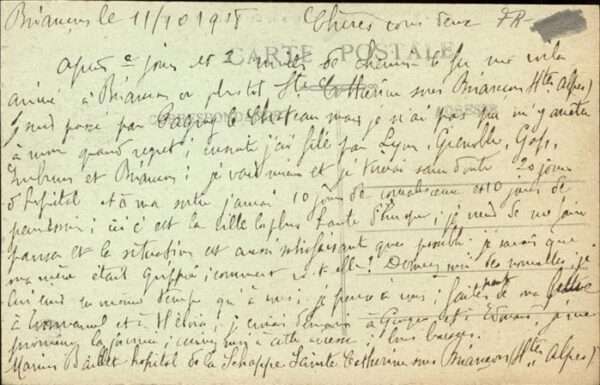 Briançon le 11/10 1915 Chères vous deux FR
CARTE POSTALE
après 2 jours et 2 nuits de chemin de fer me voila
arrivé à Briançon ou plustot Ste Catherine sous Briançon Htes Alpes)
CORRESPONDANCE ADRESSE
J suis passé par Pagny le Chateau mais je n'ai pas pu m'y arreter
à mon grand regret; ensuite j'ai filé par Lyon, Grenoble, Gap,
Embrun et Briançon; je vais mieux et je ferai sans doute 20 jours
d'hopital et à ma sortie j'aurai 10 jours de convalescence et 10 jours de
permission; ici c'est la ville la plus haute d'Europe; je viens de me faire
panser et la situation est aussi satisfaisant que possible. je savais que
ma mère était grippée; comment va t-elle? Donnez moi des nouvelles; je
lui écris en meme temps qu'à vous; je pense à vous; faites part de ma lettre
à Emmanuel et à; je
promener la journée; à cette adresse; bons baisers.
Marius hopital de la Schappe Sainte Catherine sous Briançon (Htes Alpes)